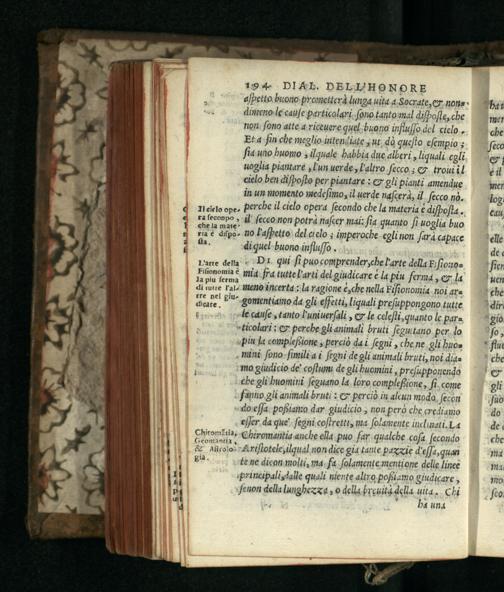 194 DIAL. DELL'HONORE
aspetto buono prometterà lunga uita a Socrate, & non-
dimeno le cause particolari sono tanto mal disposte, che
non sono atte a riceuere quel buono influsso del cielo.
Et a fin che meglio intendiate, ui dò questo esempio;
sia uno huomo, ilquale habbia due alberi, liquali egli
uoglia piantare, l'un uerde, l'altro secco; & troui il
cielo ben disposto per piantare: & gli pianti amendue
in un momento medesimo, il uerde nascerà, il secco nò.
perche il cielo opera secondo che la materia è disposta.
il secco non potrà nascer mai: sia quanto si uoglia buo
no l'aspetto del cielo; imperoche egli non sarà capace
di quel buono influsso.
DI qui si puo comprender, che l'arte della Fisiono-
mia fra tutte l'arti del giudicare è la piu ferma, & la
meno incerta: la ragione è, che nella Fisionomia noi ar-
gomentiamo da gli effetti, liquali presuppongono tutte
le cause, tanto l'uniuersali, & le celesti, quanto le par-
ticolari: & perche gli animali bruti seguitano per lo
piu la complessione, perciò da i segni, che ne gli huo-
mini sono simili a i segni de gli animali bruti, noi dia-
mo giudicio de' costumi de gli huomini, presupponendo
che gli huomini seguano la loro complessione, si come
fanno gli animali bruti: & perciò in alcun modo, secon
do essa possiamo dar giudicio, non però che crediamo
esser da que' segni costretti, ma solamente inclinati. La
Chiromantia anche ella puo far qualche cosa secondo
Aristotele, ilqual non dice gia tante pazzie d'essa, quan
te ne dicon molti, ma fa solamente mentione delle linee
principali, dalle quali niente altro possiamo giudicare,
senon della lunghezza, o della breuità della uita. Chi
ha una
Il cielo ope-
ra secondo,
che la mate-
ria è dispo-
sta.
L'arte della
Fisionomia è
la piu ferma
di tutte l'al-
tre nel giu-
dicare.
Chiromātia,
Geomantia,
& Astrolo-
gia.